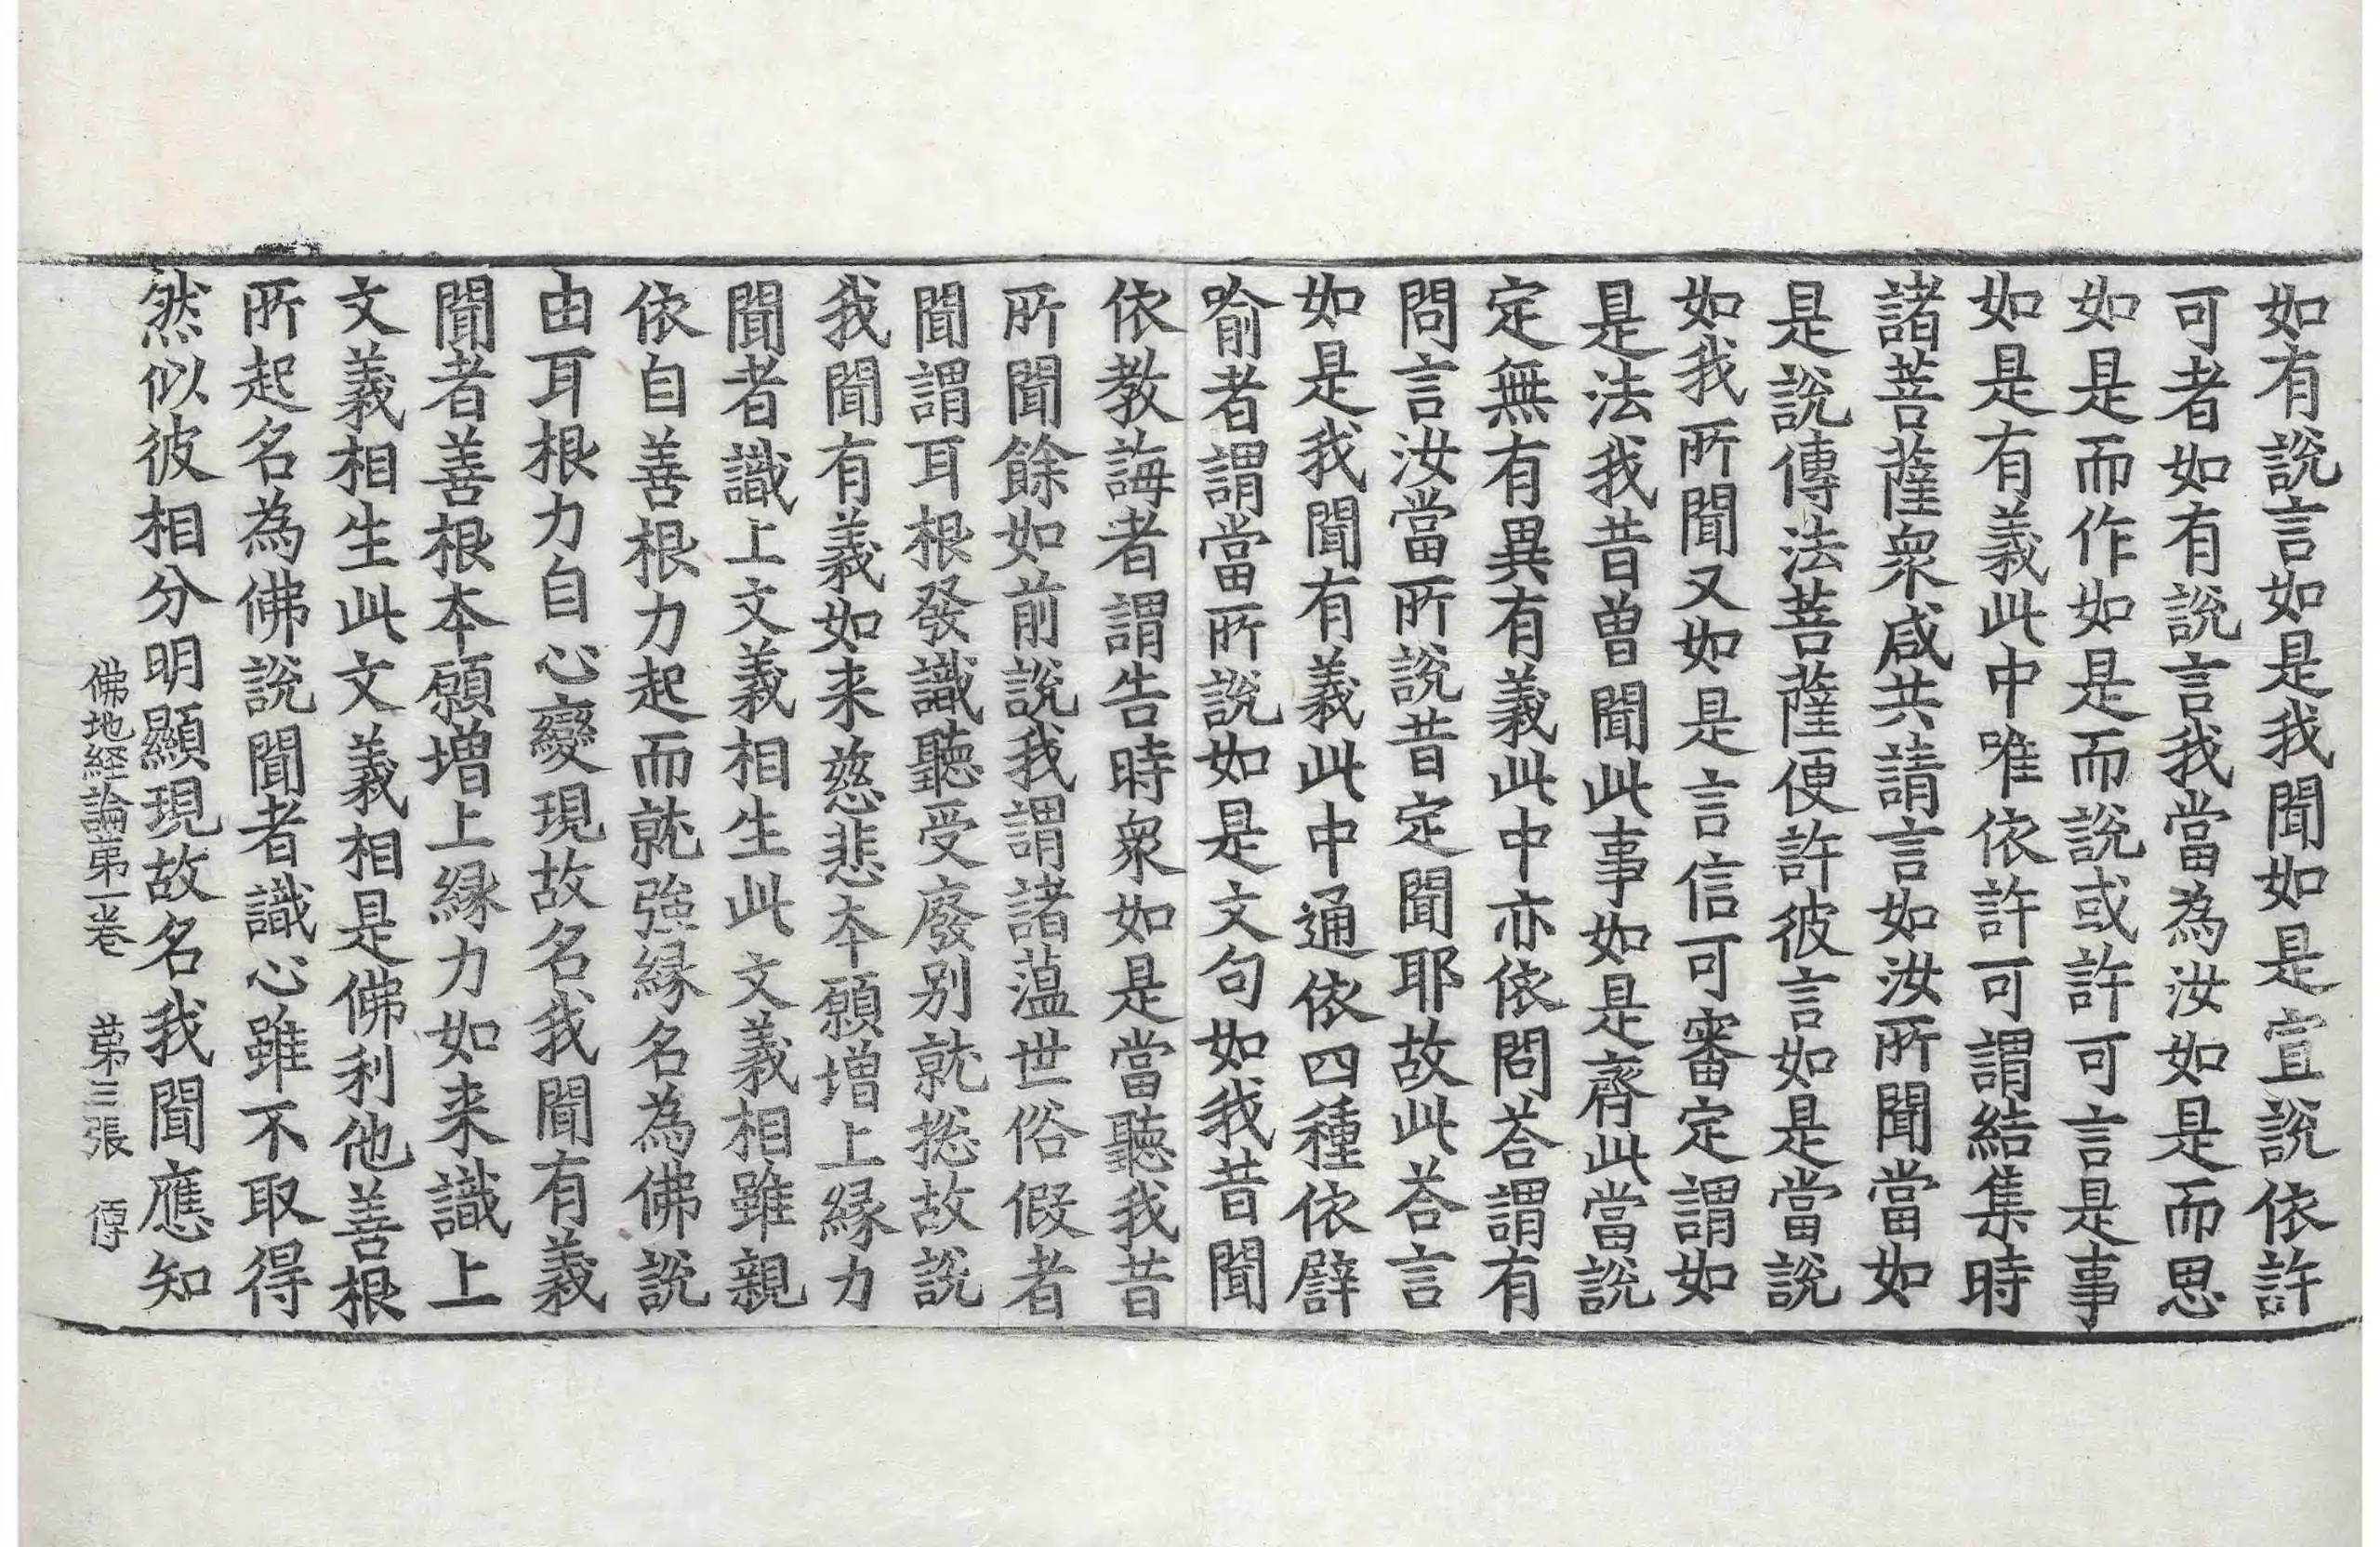 如有說言如是我聞如是宣說依許
可者如有說言我當為汝如是而思
如是而作如是而說或許可言是事
如是有義此中唯依許可謂結集時
諸菩薩衆咸共請言如汝所聞當如
是說傳法菩薩便許彼言如是當說
如我所聞又如是言信可審定謂如
是法我昔曾聞此事如是齊此當說
定無有異有義此中亦依問荅謂有
問言汝當所說昔定聞耶故此荅言
如是我聞有義此中通依四種依譬
喻者謂當所說如是文句如我昔聞
依教誨者謂告時衆如是當聽我昔
所聞餘如前說我謂諸薀世俗假者
聞謂耳根發識聽受廢別就揔故說
我聞有義如来慈悲本願增上縁力
聞者識上文義相生此文義相雖親
依自善根力起而就強縁名為佛說
由耳根力自心變現故名我聞有義
聞者善根本願增上縁力如来識上
文義相生此文義相是佛利他善根
所起名為佛說聞者識心雖不取得
然似彼相分明顯現故名我聞應知
佛地経論第一卷 第三張 傳